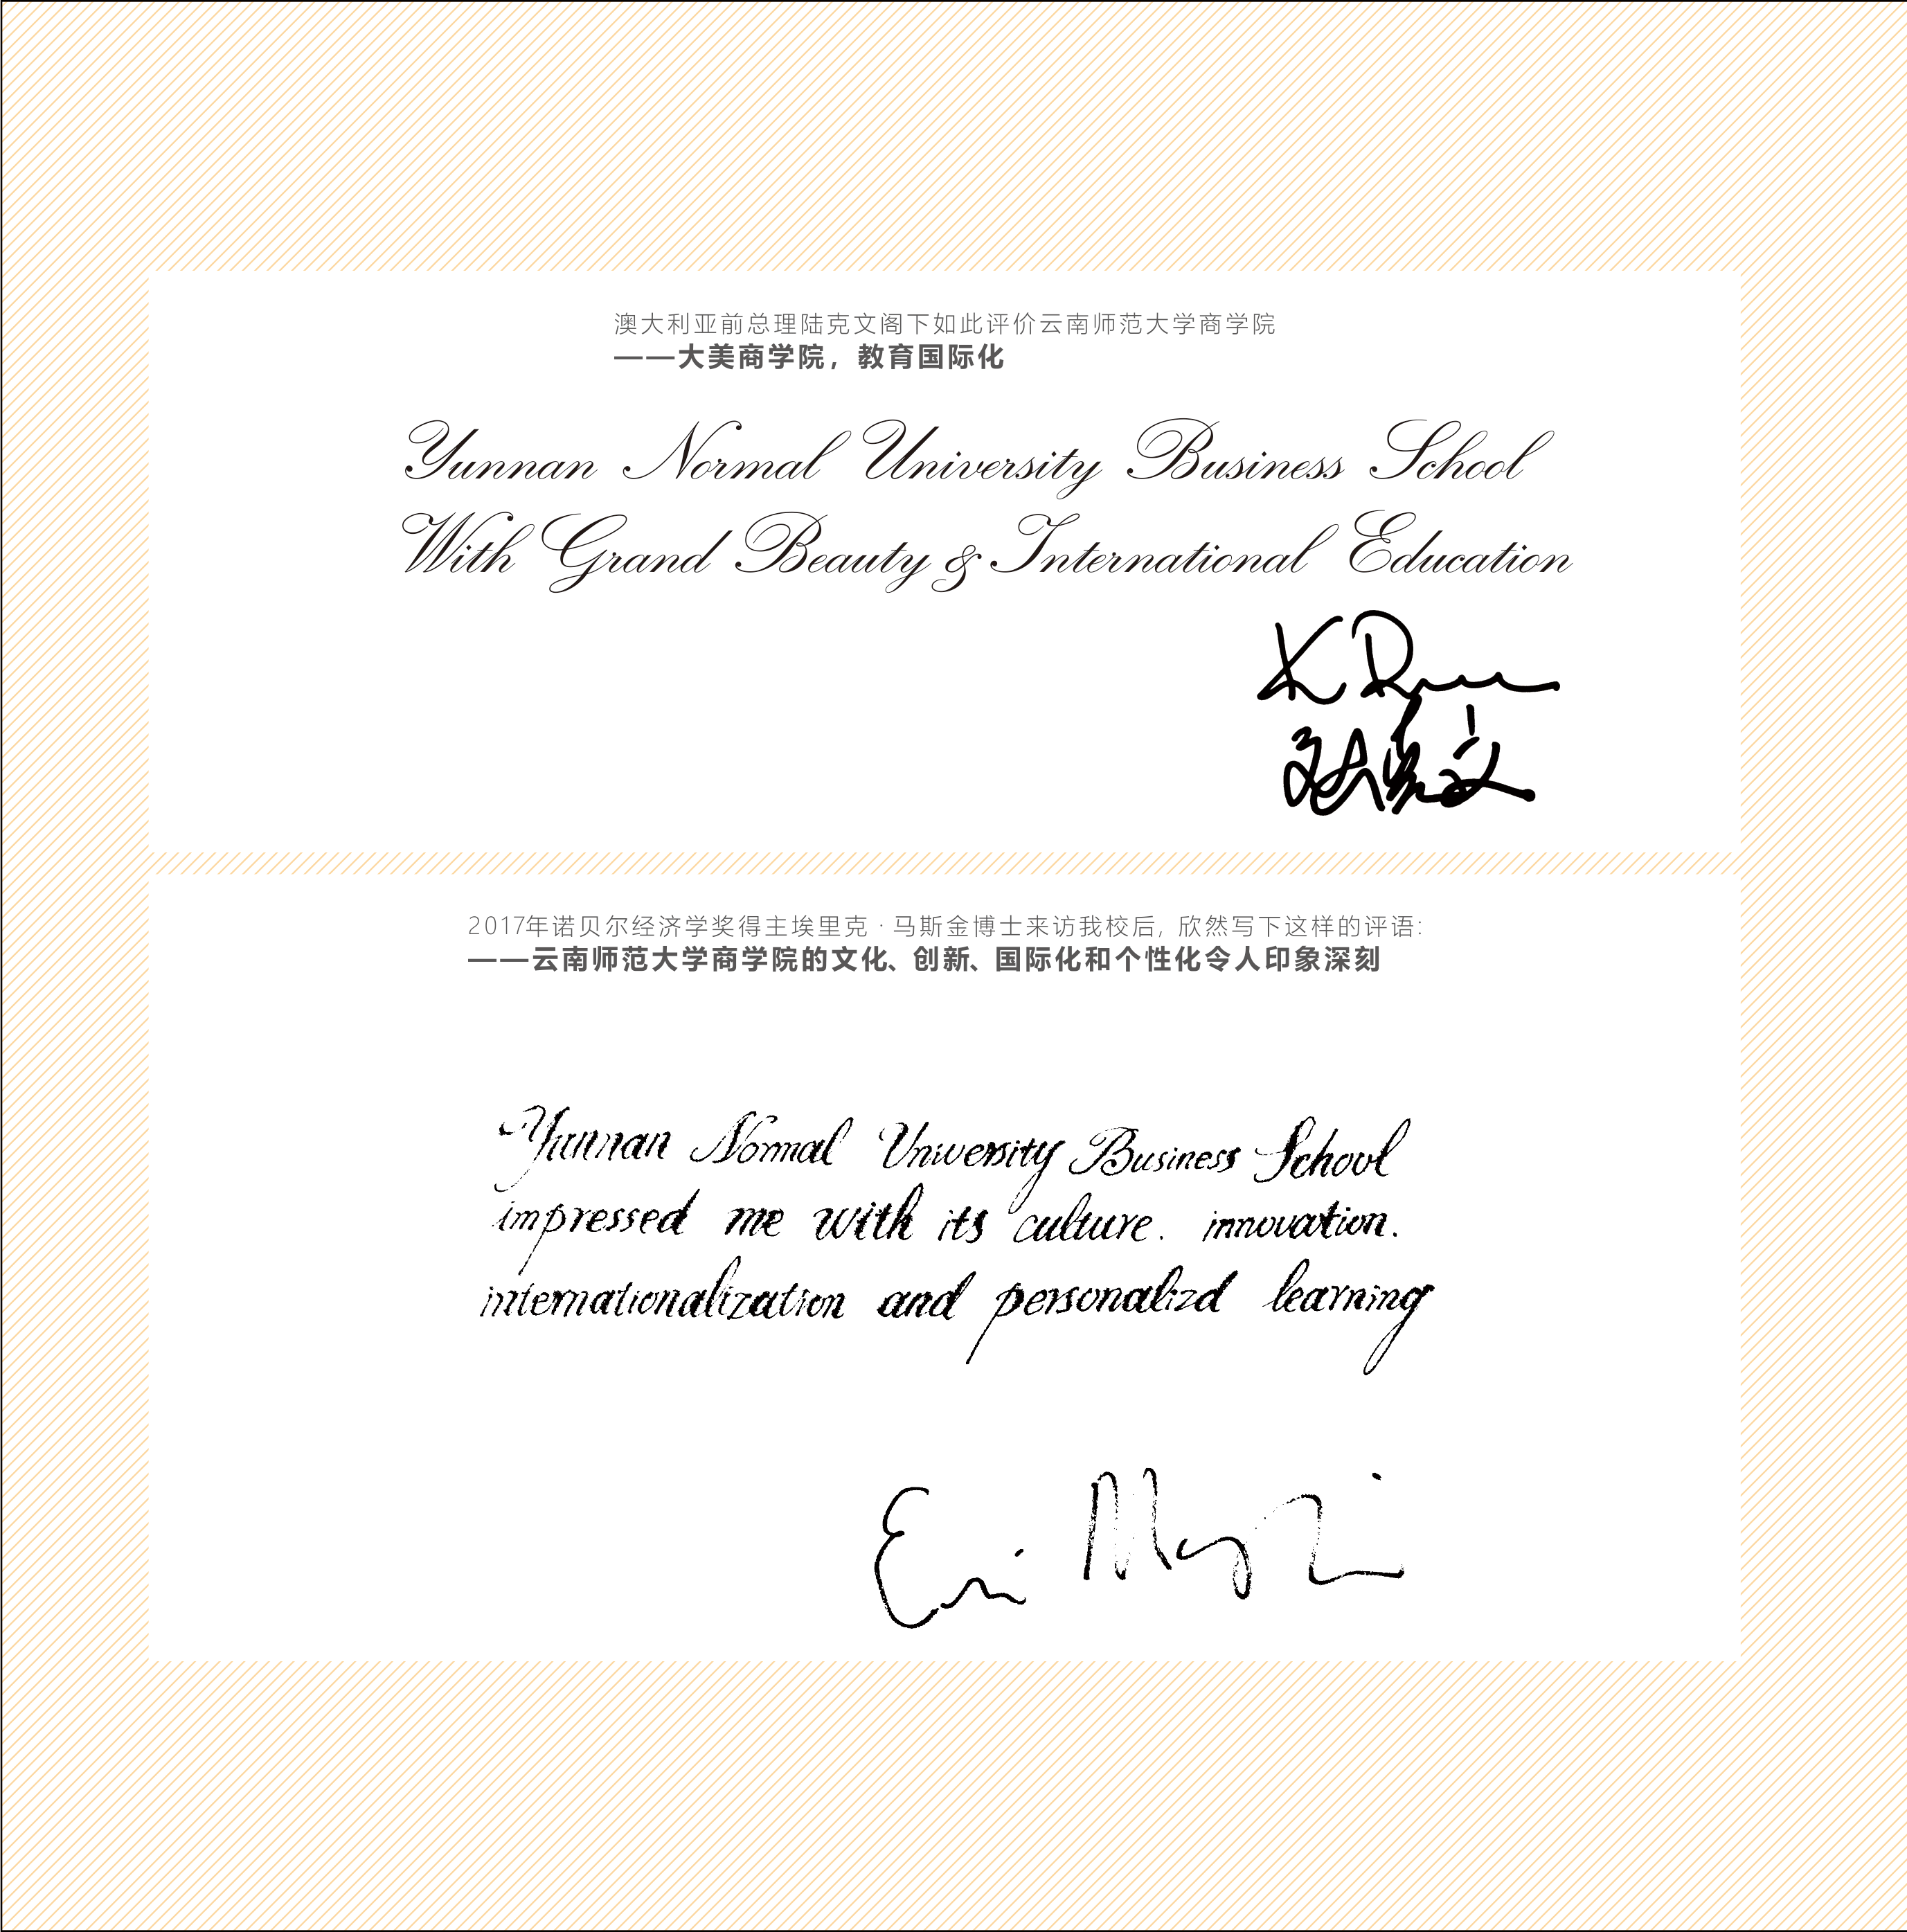 澳大利亚前总理陆克文阁下如此评价云南师范大学商学院
——大美商学院，教育国际化
Yunnan Normal University Business School
With Grand Beauty & International Education
K Rudd
陆克文
2017年诺贝尔经济学奖得主埃里克·马斯金博士来访我校后，欣然写下这样的评语：
——云南师范大学商学院的文化、创新、国际化和个性化令人印象深刻
Yunnan Normal University Business School
impressed me with its culture. innovation.
internationalization and personalizd learning
Eric Maskin